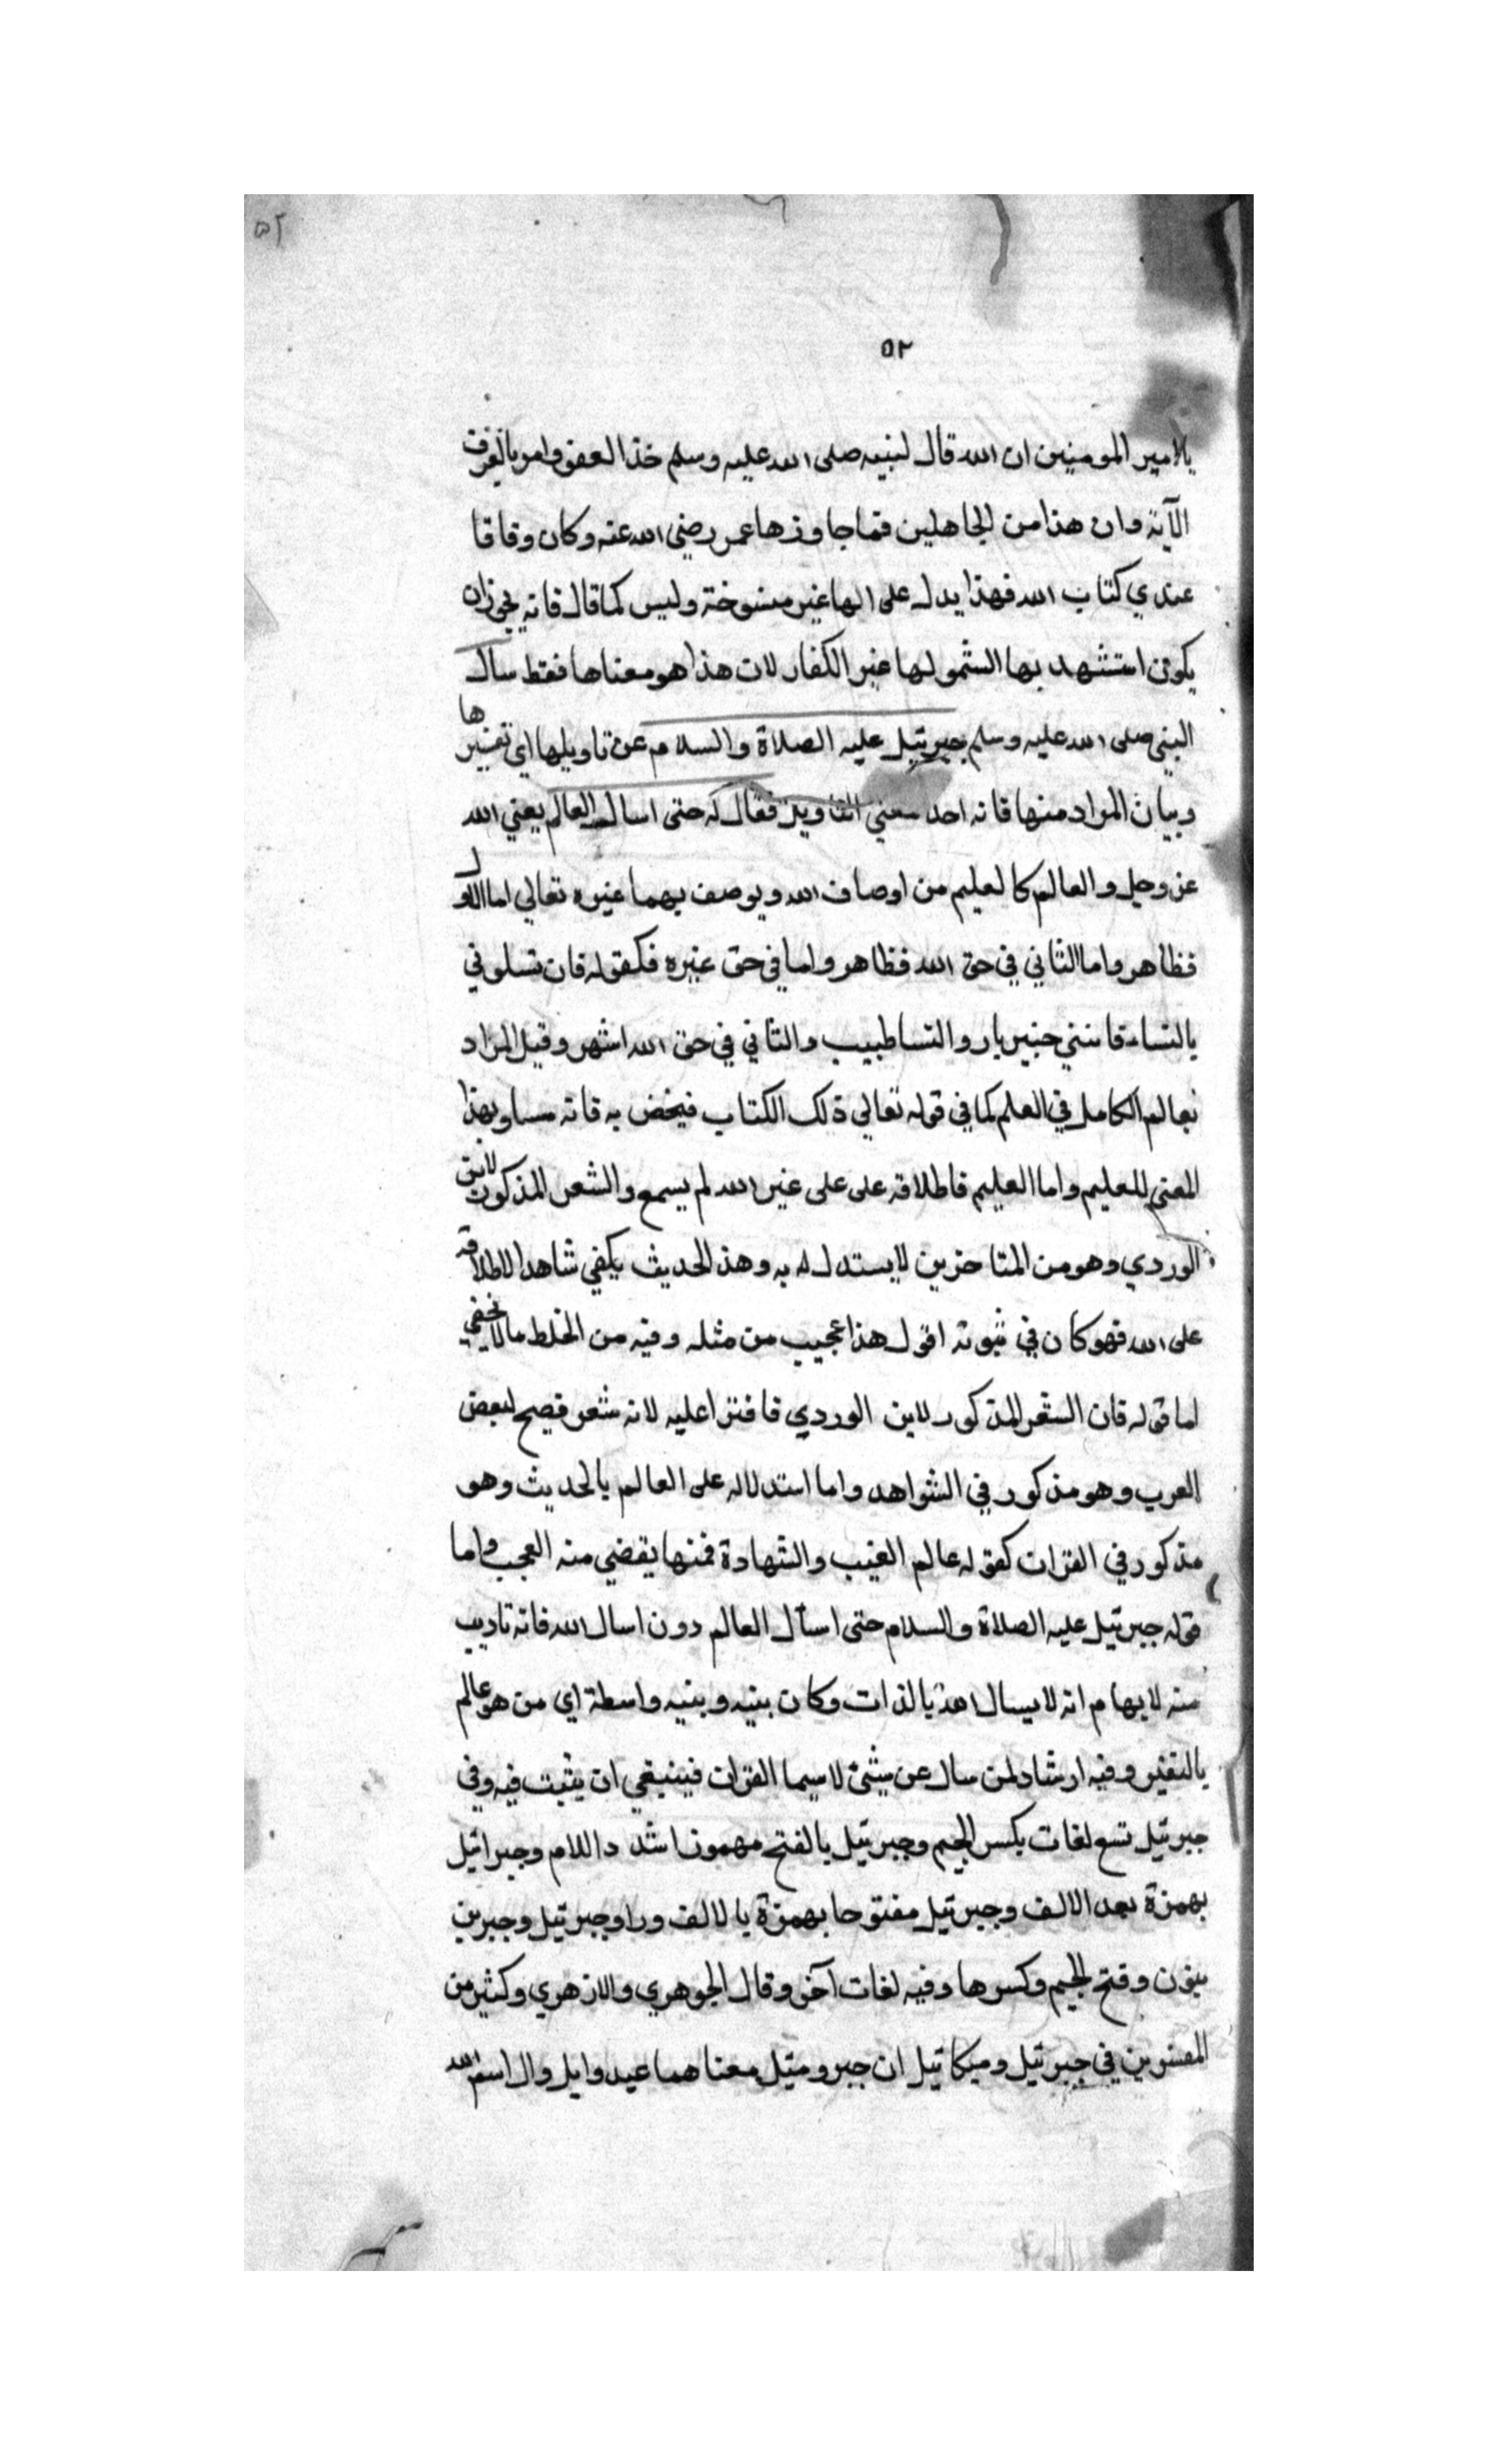 ٥٢
٥٢
يالامير المومنين ان الله قال لنبيه صلى الله عليه وسلم خذ العفو وامر بالعرف
الآية وان هذا من الجاهلين فما جاوزها عمر رضى الله عنه وكان وقافا
عندي كتاب الله فهذا يدل على انها غير منسوخة وليس كما قال فانه يجوزان
يكون استشهد بها الشمولها غير الكفار لان هذا هو معناها فقط سال
النبي صلى الله عليه وسلم جبرئيل عليه الصلاة والسلام عن تاويلها اي تفسيرها
وبيان المراد منها فانه احد معني التاويل فقال له حتى اسال العالم يعني الله
عز وجل والعالم كالعليم من اوصاف الله ويوصف بهما غيره تعالى اما الاول
فظاهر واما الثاني في حق الله فظاهر واما في حق غيره فكقوله فان تسلوني
بالنساء فانني خبير بادواء النسا طبيب والثاني في حق الله اشهر وقيل المراد
بعالم الكامل في العلم كما في قوله تعالى ذلك الكتاب فيخص به فانه مساو بهذا
المعنى للعليم واما العليم فاطلاقه على على غير الله لم يسمع والشعر المذكور لابن
الوردي وهو من المتاخرين لا يستدل له به وهذ الحديث يكفي شاهدا لاطلاقه
على الله فهو كان في ثبوته اقول هذا عجيب من مثله وفيه من الخلط مالا يخفي
اما قوله فان الشعر المذكور لابن الوردي فافترا عليه لانه شعر فصيح لبعض
العرب وهو مذكور في الشواهد واما استدلاله على العالم بالحديث وهو
مذكور في القران كقوله عالم الغيب والشهادة فمنها يقضي منه العجب واما
قوله جبرئيل عليه الصلاة والسلام حتى اسأل العالم دون اسال الله فانه تاديب
منه لايهام انه لا يسال الله بالذات وكان بينه وبينه واسطة اي من هو عالم
بالتفسير وفيه ارشاد لمن سال عن شئ لا سيما القران فينبغي ان يثبت فيه وفي
جبرئيل تسع لغات بكسر الجيم وجبرئيل بالفتح مهموزا شد داللام وجبرائيل
بهمزة بعد الالف وجبرئيل مفتوحا بهمزة يا لالف ورا وجبرئيل وجبرين
بنون وفتح الجيم وكسرها وفيه لغات آخر وقال الجوهري والازهري وكثير من
المفسرين في جبرئيل وميكائيل ان جبر وميك معناهما عبد وايل وال اسم الله